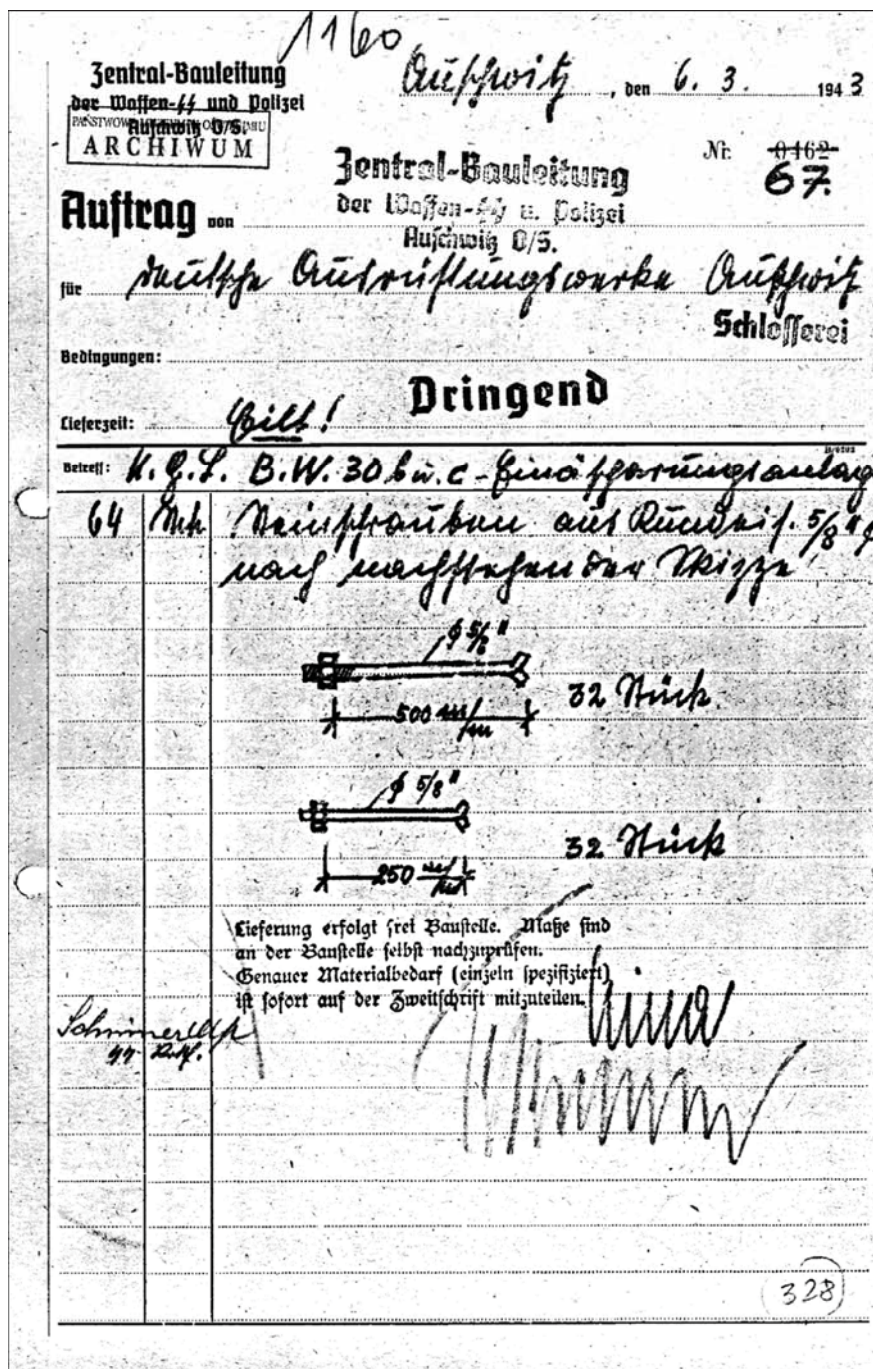 1160
Zentral-Bauleitung
der Waffen-ᛋᛋ und Polizei
Auschwitz O/S.
ARCHIWUM
Auschwitz, den 6. 3. 1943
Nr. 0462
67.
Zentral-Bauleitung
der Waffen-ᛋᛋ u. Polizei
Auschwitz O/S.
Auftrag von
für Deutsche Ausrüstungswerke Auschwitz
Schlosserei
Bedingungen:
Dringend
Lieferzeit: Eilt!
Betreff: K.G.L. B.W. 30 b u. c - Einäscherungsanlag
64 Stck Steinschrauben aus Rundeis. 5/8" φ
nach nachstehender Skizze
φ 5/8"
500 m/m
32 Stück.
φ 5/8"
250 m/m
32 Stück
Lieferung erfolgt frei Baustelle. Maße sind
an der Baustelle selbst nachzuprüfen.
Genauer Materialbedarf (einzeln spezifiziert)
ist sofort auf der Zweitschrift mitzuteilen.
328